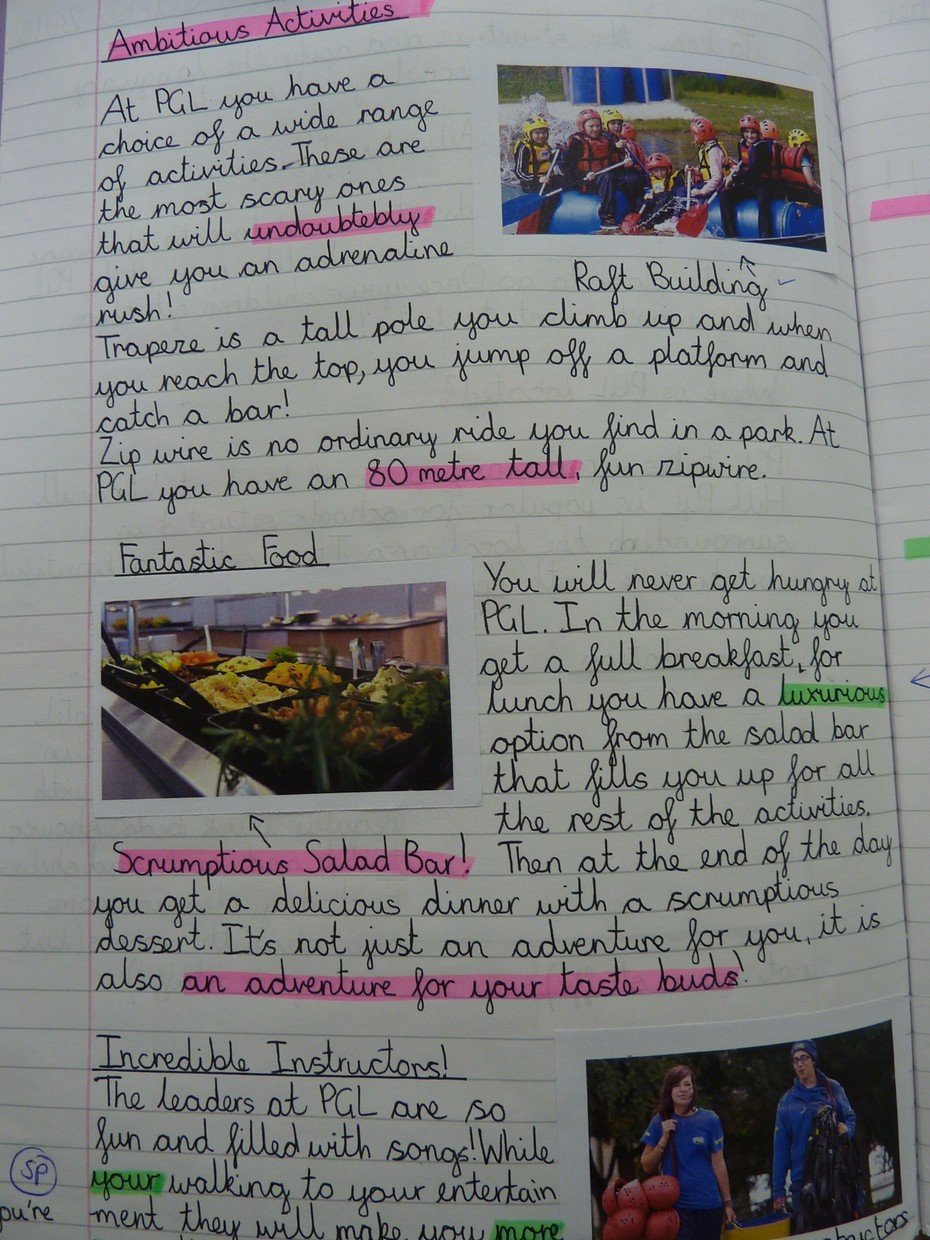 Ambitious Activities
At PGL you have a
choice of a wide range
of activities. These are
the most scary ones
that will undoubtebly
give you an adrenaline
rush!
Raft Building
Trapeze is a tall pole you climb up and when
you reach the top, you jump off a platform and
catch a bar!
Zip wire is no ordinary ride you find in a park. At
PGL you have an 80 metre tall, fun zipwire.
Fantastic Food
You will never get hungry at
PGL. In the morning you
get a full breakfast, for
lunch you have a luxurious
option from the salad bar
that fills you up for all
the rest of the activities.
Scrumptious Salad Bar!
Then at the end of the day
you get a delicious dinner with a scrumptious
dessert. It's not just an adventure for you, it is
also an adventure for your taste buds!
Incredible Instructors!
The leaders at PGL are so
fun and filled with songs! While
your walking to your entertain
ment they will make you more
sp
you're